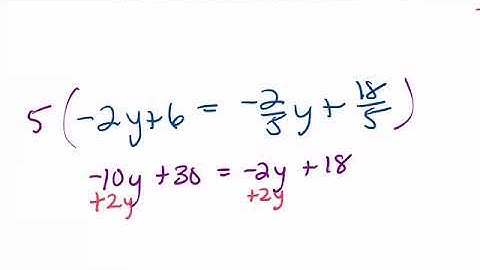 5(-2y+6 = -2/5y + 18/5)
-10y +30 = -2y +18
+2y +2y